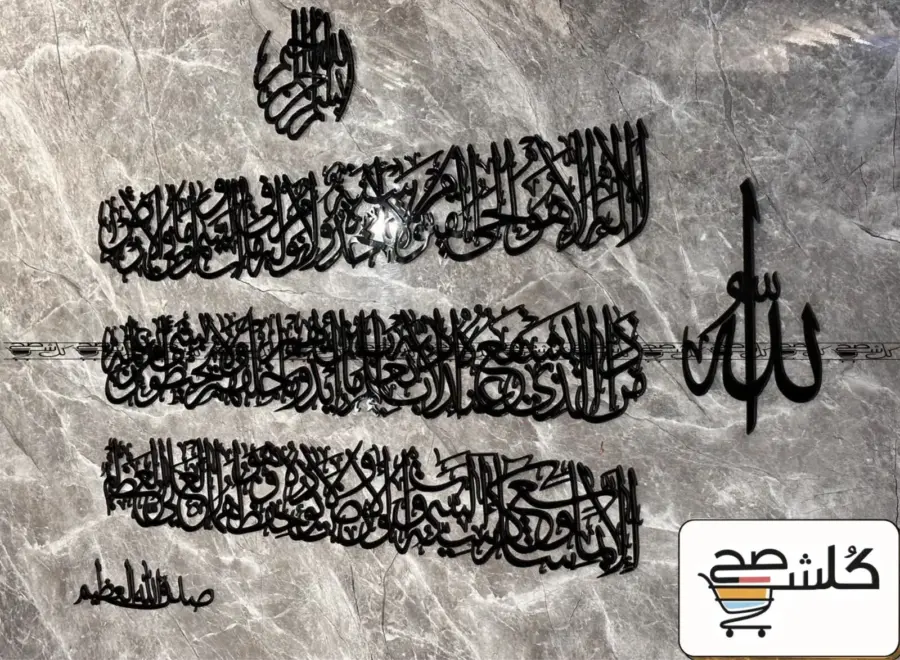 بسم الله الرحمن الرحيم
الله لا إله إلا هو الحي القيوم لا تأخذه سنة ولا نوم له ما في السموات وما في الأرض
من ذا الذي يشفع عنده إلا بإذنه يعلم ما بين أيديهم وما خلفهم ولا يحيطون بشيء من علمه
إلا بما شاء وسع كرسيه السموات والأرض ولا يؤده حفظهما وهو العلي العظيم
الله
صدق الله العظيم
كُلشي صح